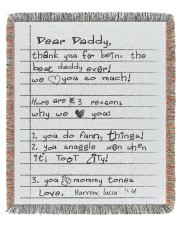 Dear Daddy,
thank you for being the
best daddy ever!
we you so much!
Here are 3 reasons
why we you:
1. you do funny things!
2. you snuggle mom when
it's TOOT CITY!
3. you mommy tones
Love, Harrow, lucia